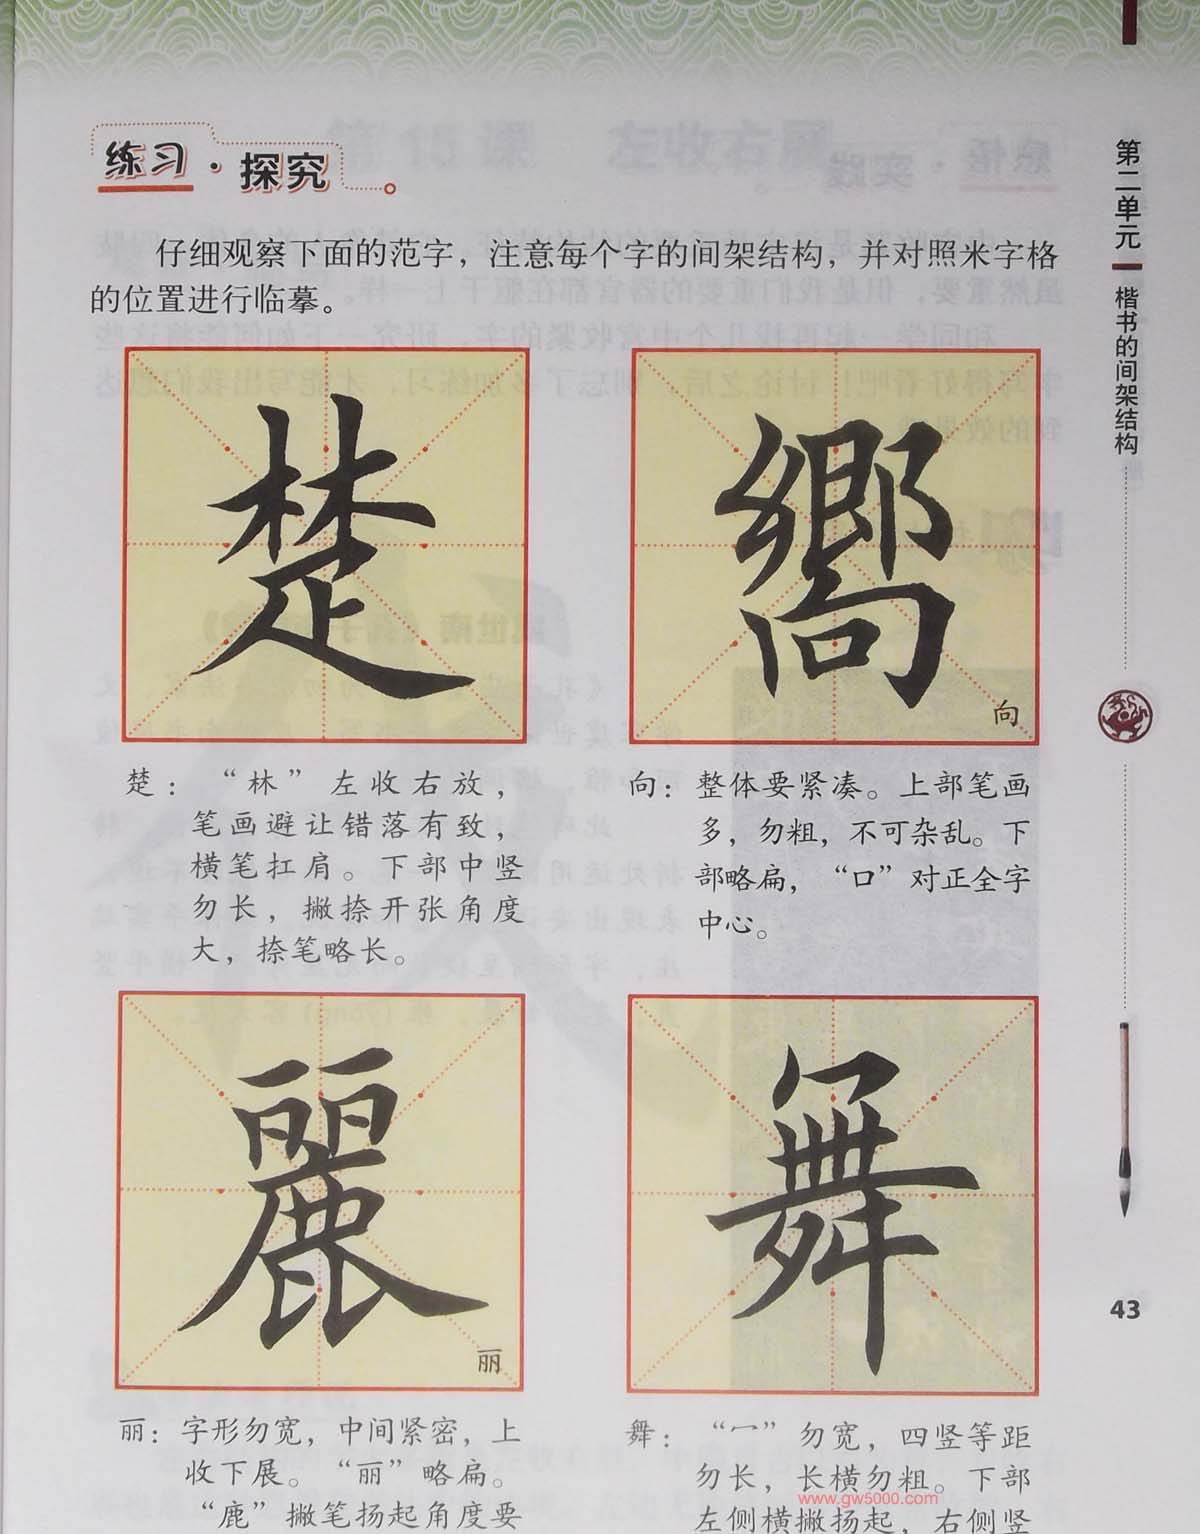 练习·探究
仔细观察下面的范字，注意每个字的间架结构，并对照米字格
的位置进行临摹。
楚
嚮
向
楚：“林”左收右放，
笔画避让错落有致，
横笔扛肩。下部中竖
勿长，撇捺开张角度
大，捺笔略长。
向：整体要紧凑。上部笔画
多，勿粗，不可杂乱。下
部略扁，“口”对正全字
中心。
麗
丽
舞
丽：字形勿宽，中间紧密，上
收下展。“丽”略扁。
“鹿”撇笔扬起角度要
舞：“𠂉”勿宽，四竖等距
勿长，长横勿粗。下部
左侧横撇扬起，右侧竖
第二单元
楷书的间架结构
43
www.gw5000.com